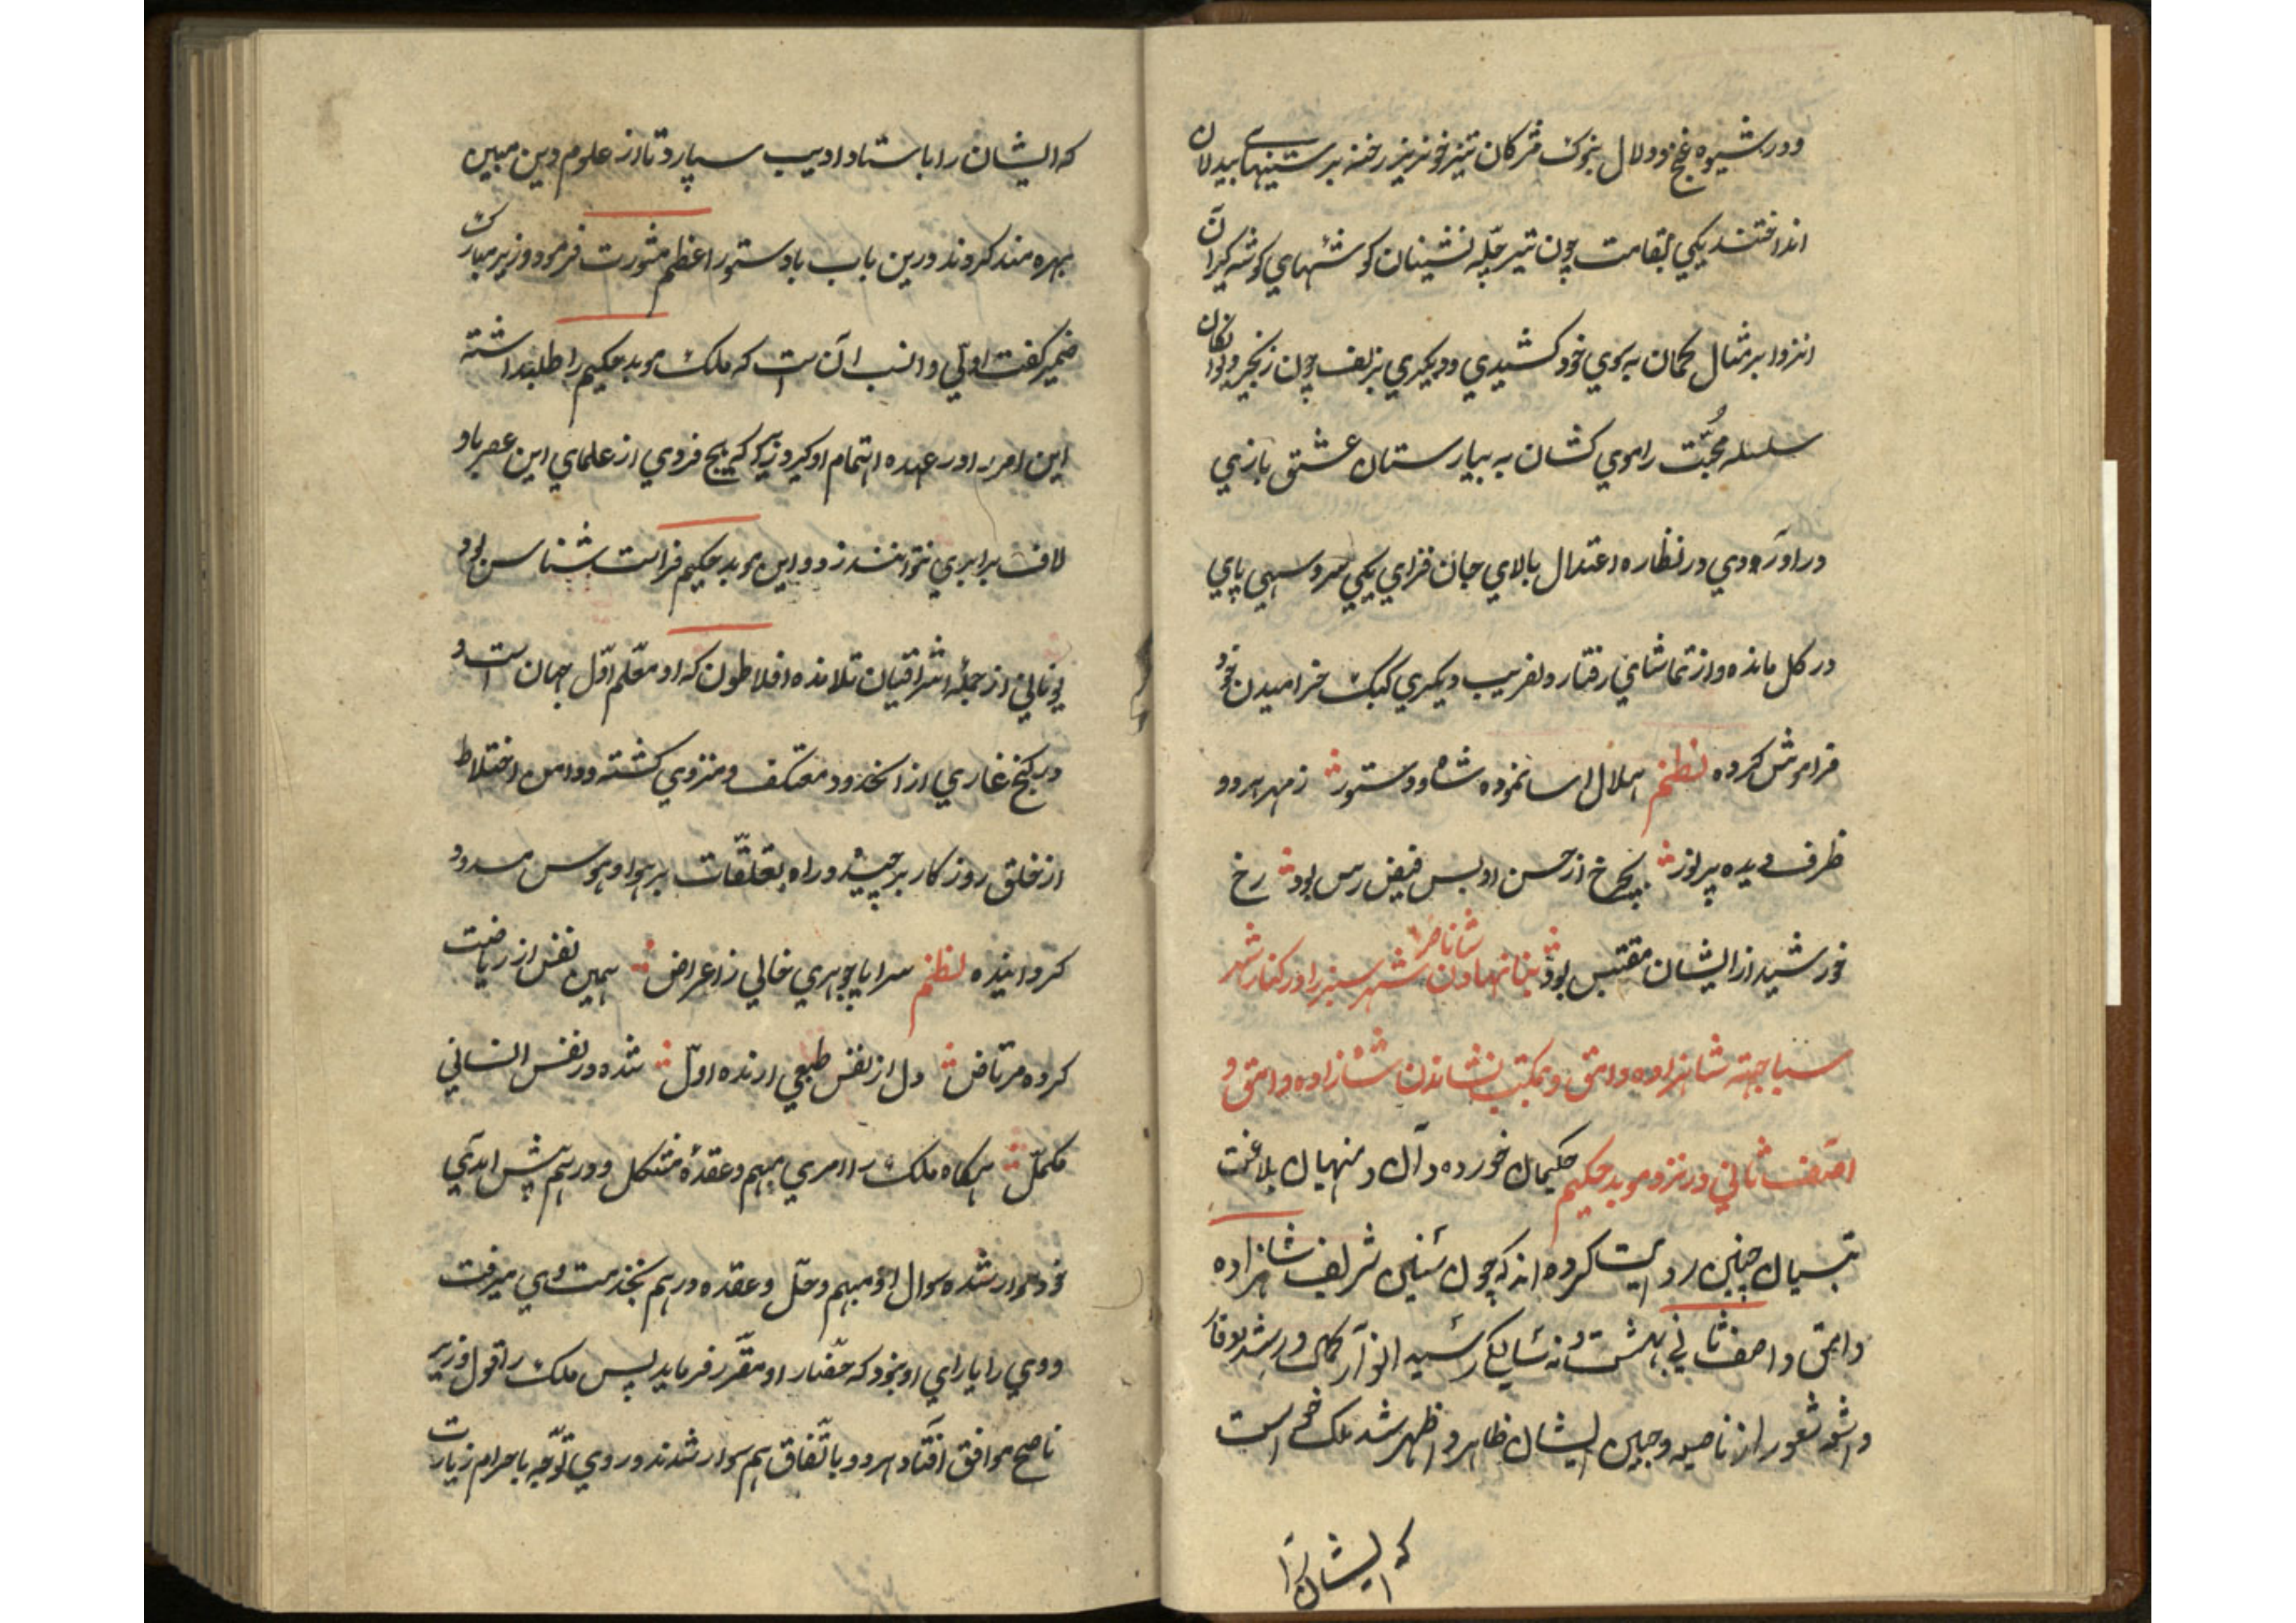 ودر شیوه غنج ودلال بنوک مژکان تیز خونریز رخنه بر سینهای بیدلان
انداختند یکی بقامت چون تیر چلّه نشینان کوشهای کوشه کیران
انزوا بر مثال کمان به سوی خود کشیدی ودیکری بزلف چون زنجیر دیوانکان
سلسله محبّت را موی کشان به بیمارستان عشق بازی
در آوردی در نظاره اعتدال بالای جان فزای یکی سرو سهی پای
در کل مانده واز تماشای رفتار دلفریب دیکری کبک خرامیدن خود
فراموش کرده نظم هلال اسا نموده شاه ودستور ز مهر هر دو
ظرف دیده پر نور بچرخ از حسن او بس فیض رس بود رخ
خورشید از ایشان مقتبس بود بنا نهادن شاناصر شهر سبز را در کنار شهر
سبا جهته شاهزاده وامق وبمکتب نشاندن شاهزاده وامق و
آصف ثانی در نزد موبد حکیم حکیمان خورده دان و منهیان بلاغت
تبیان چنین روایت کرده اند که چون سنین شریف شاهزاده
وامق و اصف ثانی بهشت ونه سالکی رسید انوار کمال ورشد وفا
واشعه شعور از ناصیه وجبین ایشان ظاهر واظهر شد ملک خواست
که ایشان را
که ایشان را باستاد ادیب سپارد تا از علوم دین مبین
بهره مند کردند درین باب با دستور اعظم مشورت فرمود وزیر مبارک
ضمیر کفت اولی وانسب آن است که ملک موبد حکیم را طلب داشته
این امر را در عهده اهتمام او کیرد زیرا که هیچ فردی از علمای این عصر با او
لاف برابری نتوانند زد واین موبد حکیم فراست شناس بود
یونانی از جمله اشراقیان تلامذه افلاطون که او معلّم اوّل جهان است و
در کنج غاری از آن حدود معتکف ومنزوی کشته ودامن اختلاط
از خلق روزکار برچیده وراه تعلّقات بر هوا وهوس مسدود
کردانیده نظم سراپا جوهری خالی ز اعراض همین نفس از ریاضت
کرده مرتاض دل از نفس طبعی ارنده اوّل شده در نفس انسانی
مکمّل هرکاه ملک را امری مبهم وعقدهٔ مشکل ودرهم پیش امدی
خود سوار شده سوال او مبهم وحلّ وعقده درهم بخدمت وی میرفت
ووی را یارای او نبود که حضار او مقرّر فرماید پس ملک را قول وزیر
ناصح موافق افتاد هر دو باتّفاق هم سوار شدند وروی توجّه باحرام زیارت